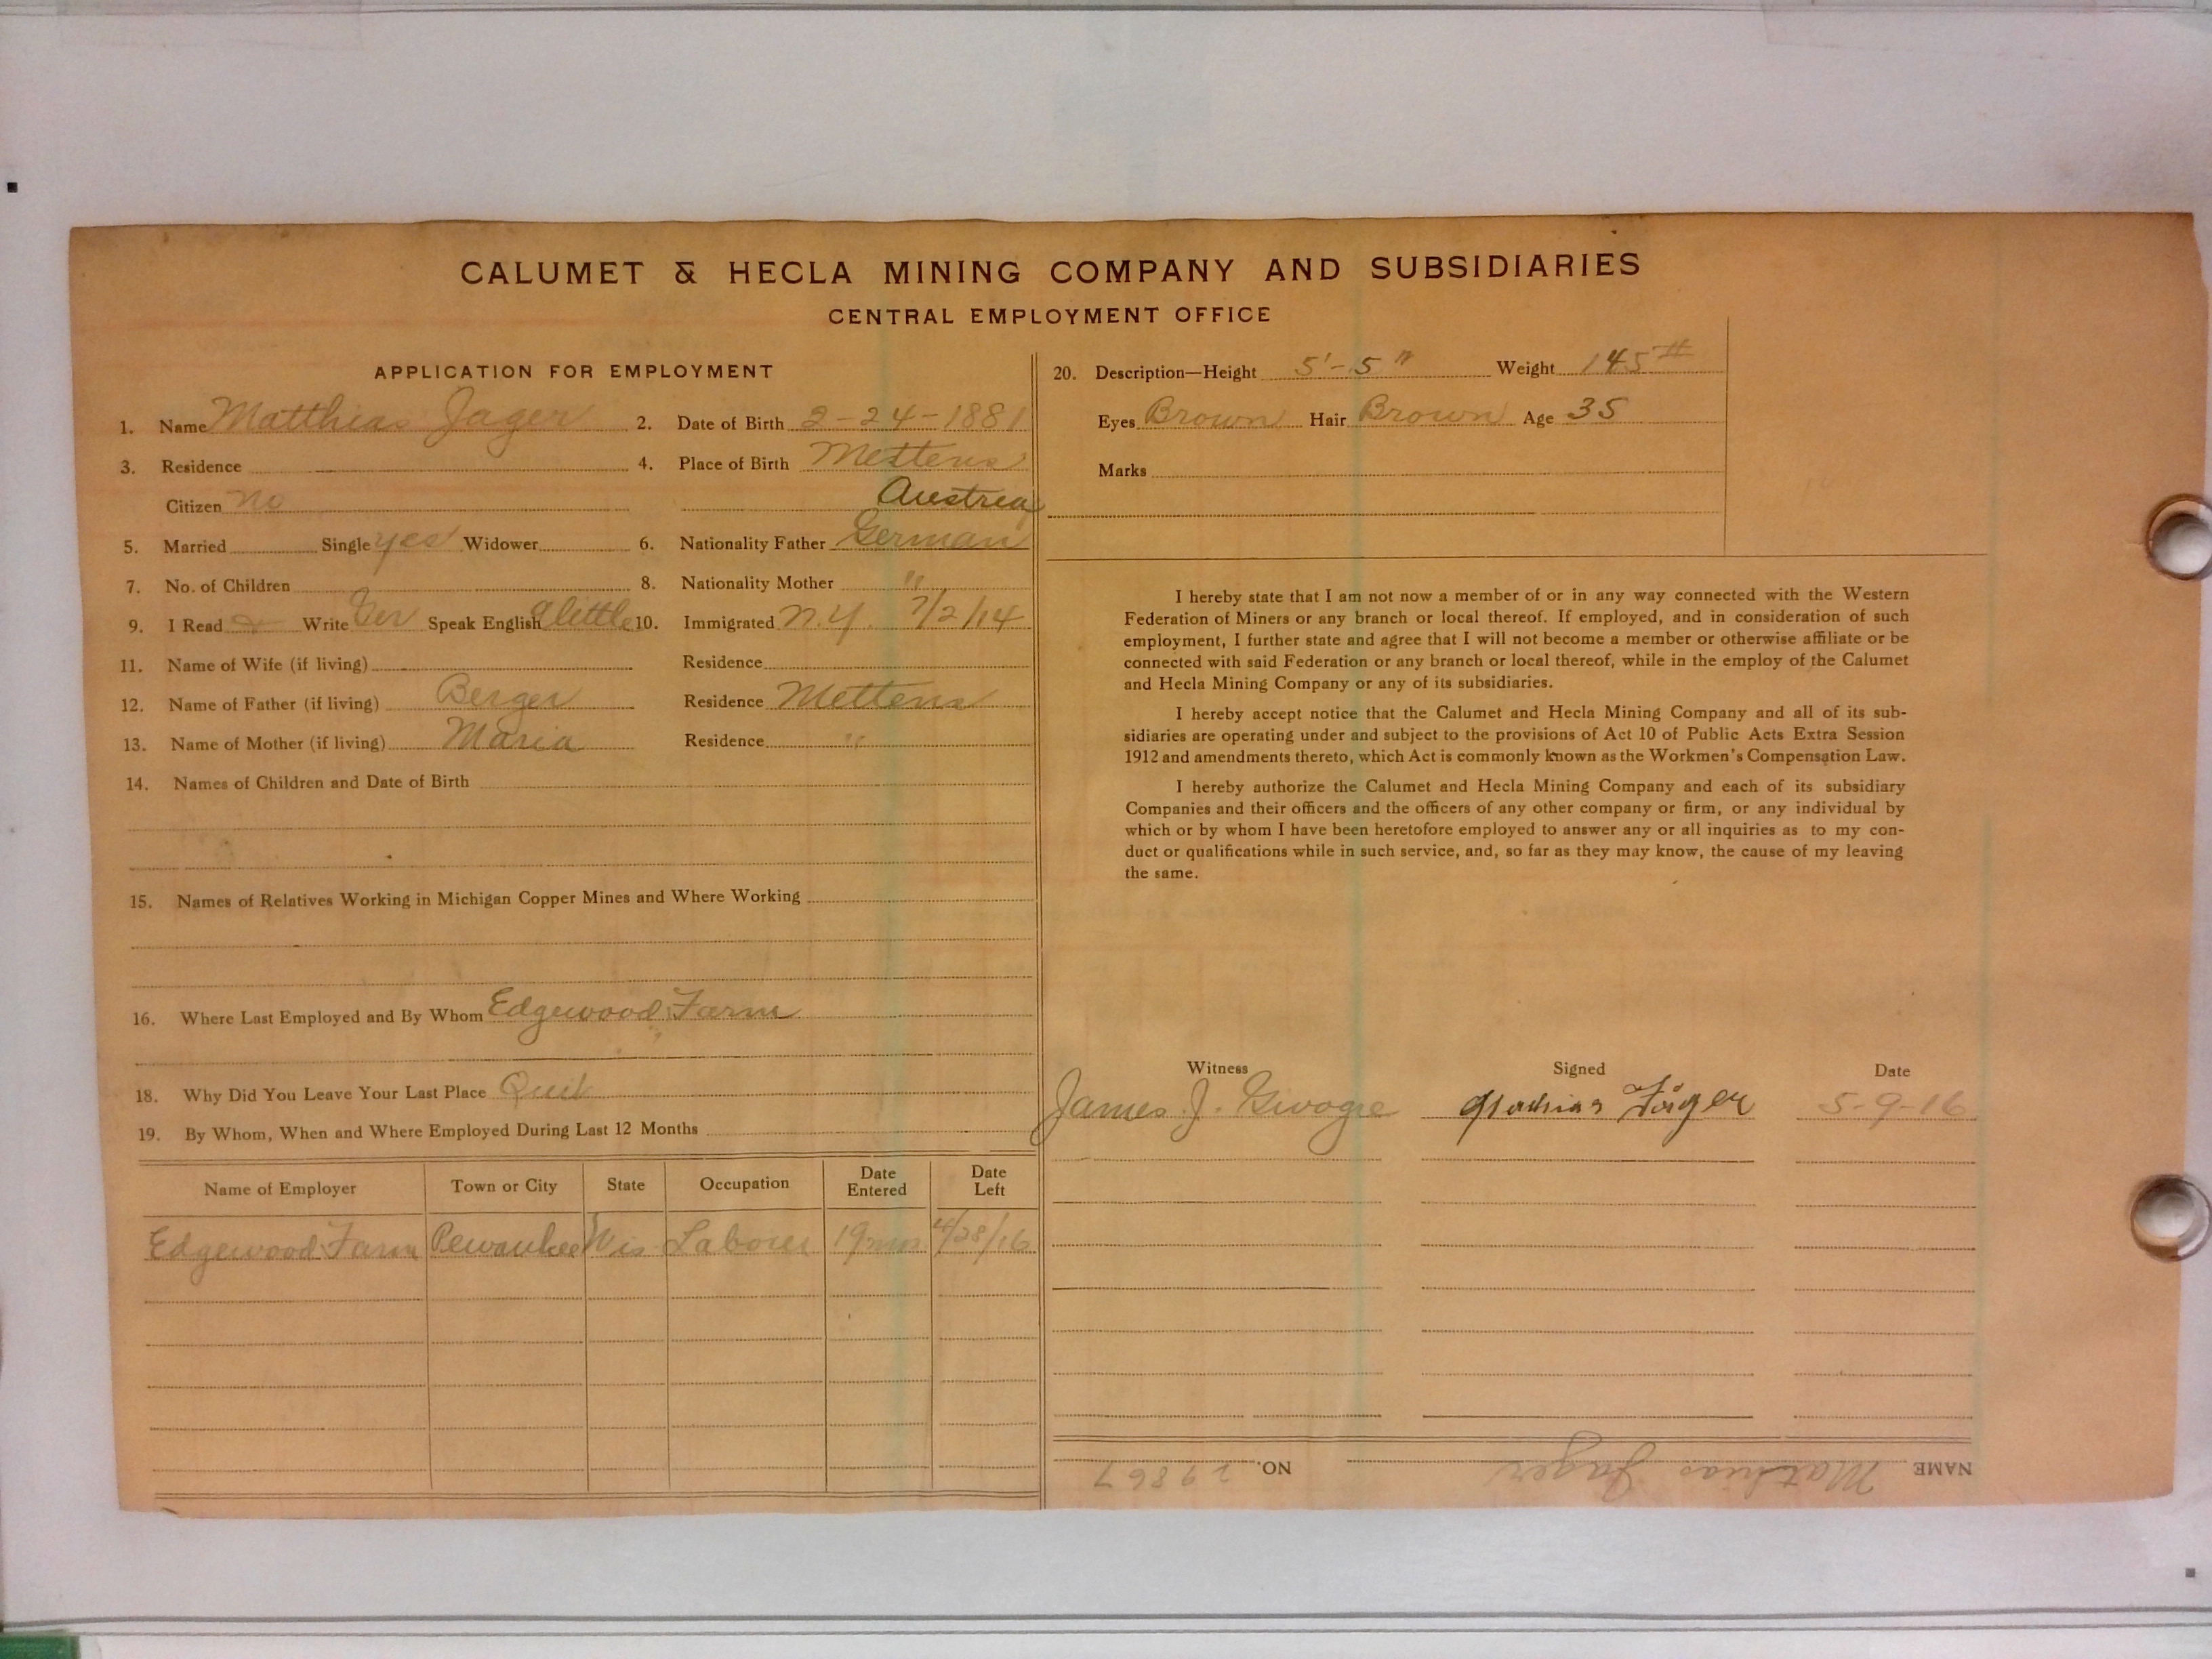 CALUMET & HECLA MINING COMPANY AND SUBSIDIARIES
CENTRAL EMPLOYMENT OFFICE
APPLICATION FOR EMPLOYMENT
1. Name Matthias Jager 2. Date of Birth 2-24-1881
3. Residence 4. Place of Birth Mettens
Citizen No Austria
5. Married Single yes Widower 6. Nationality Father German
7. No. of Children 8. Nationality Mother "
9. I Read & Write Ger Speak English A little 10. Immigrated N.Y. 7/2/14
11. Name of Wife (if living) Residence
12. Name of Father (if living) Berger Residence Mettens
13. Name of Mother (if living) Maria Residence "
14. Names of Children and Date of Birth
15. Names of Relatives Working in Michigan Copper Mines and Where Working
16. Where Last Employed and By Whom Edgewood Farm
18. Why Did You Leave Your Last Place Quit
19. By Whom, When and Where Employed During Last 12 Months
Name of Employer Town or City State Occupation Date Entered Date Left
Edgewood Farm Pewaukee Wis Laborer 19 mos 4/28/16
20. Description—Height 5'-5" Weight 145 #
Eyes Brown Hair Brown Age 35
Marks
I hereby state that I am not now a member of or in any way connected with the Western
Federation of Miners or any branch or local thereof. If employed, and in consideration of such
employment, I further state and agree that I will not become a member or otherwise affiliate or be
connected with said Federation or any branch or local thereof, while in the employ of the Calumet
and Hecla Mining Company or any of its subsidiaries.
I hereby accept notice that the Calumet and Hecla Mining Company and all of its sub-
sidiaries are operating under and subject to the provisions of Act 10 of Public Acts Extra Session
1912 and amendments thereto, which Act is commonly known as the Workmen's Compensation Law.
I hereby authorize the Calumet and Hecla Mining Company and each of its subsidiary
Companies and their officers and the officers of any other company or firm, or any individual by
which or by whom I have been heretofore employed to answer any or all inquiries as to my con-
duct or qualifications while in such service, and, so far as they may know, the cause of my leaving
the same.
Witness Signed Date
James J. Jäger 5-9-16
NAME Mathias Jager NO. 29867